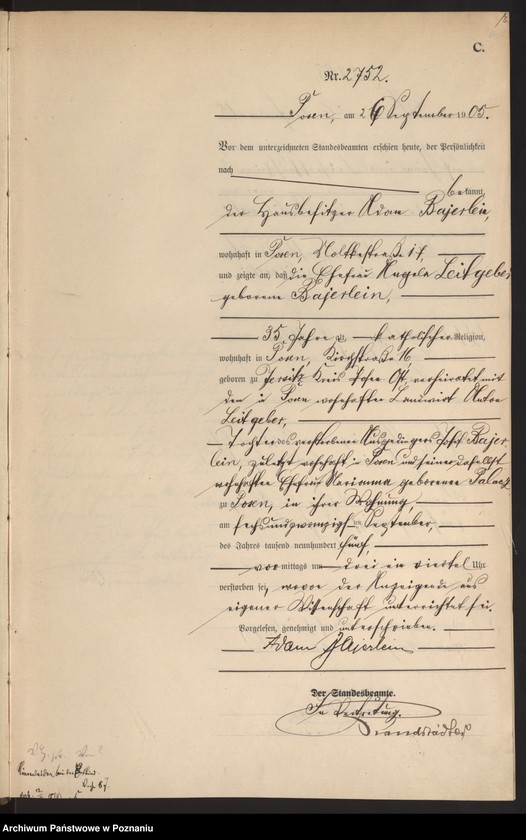 C.
Nr. 2752.
Posen, am 26 September 1905.
Vor dem unterzeichneten Standesbeamten erschien heute, der Persönlichkeit
nach
bekannt,
der Hausbesitzer Adam Bajerlein,
wohnhaft in Posen, Moltkestraße 17,
und zeigte an, daß die Ehefrau Angela Leitgeber,
geborene Bajerlein,
35 Jahre alt, katholischer Religion,
wohnhaft in Posen, Kirchstraße 16,
geboren zu Jersitz Kreis Posen Ost, verheiratet mit
dem in Posen wohnhaften Landwirt Anton
Leitgeber,
Tochter des verstorbenen Ausgedingers Josef Bajer
lein, zuletzt wohnhaft in Posen und seiner daselbst
wohnhaften Ehefrau Marianna geborenen Palacz
zu Posen, in ihrer Wohnung,
am sechsundzwanzigsten September,
des Jahres tausend neunhundert fünf,
vormittags um drei ein viertel Uhr
verstorben sei, wovon der Anzeigende aus
eigener Wissenschaft unterrichtet sei.
Vorgelesen, genehmigt und unterschrieben.
Adam Bajerlein
Der Standesbeamte.
In Vertretung.
Brandstädter
Archiwum Państwowe w Poznaniu